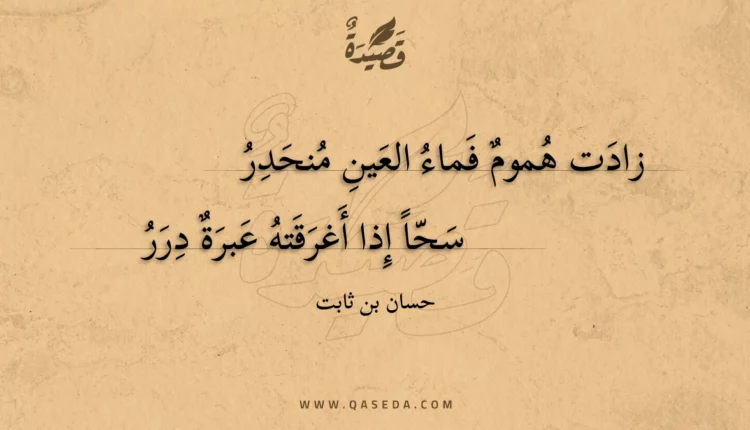 قَصِيدَةٌ
زادَت هُمومٌ فَماءُ العَينِ مُنحَدِرُ
سَحّاً إِذا أَغرَقَتهُ عَبرَةٌ دِرَرُ
حسان بن ثابت
WWW.QASEDA.COM